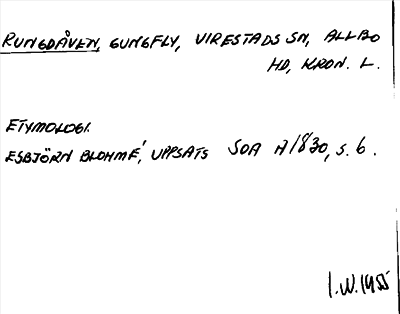 RUNGDÅVEN, GUNGFLY, VIRESTADS SN, ALLBO
HD, KRON. L.
ETYMOLOGI.
ESBJÖRN BLOHMÉ, UPPSATS SOA A1830, S. 6.
I.W. 1955